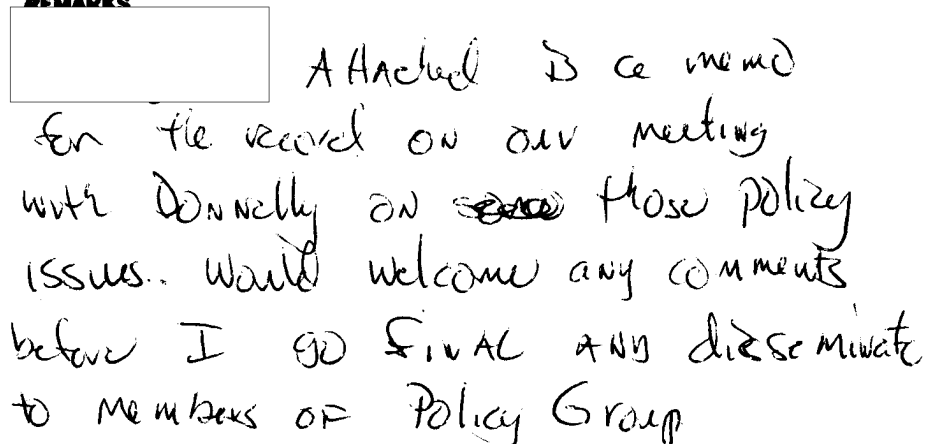 REMARKS
Attached is a memo
for the record on our meeting
with Donnelly on those policy
issues.. Would welcome any comments
before I go final and disseminate
to members of Policy Group